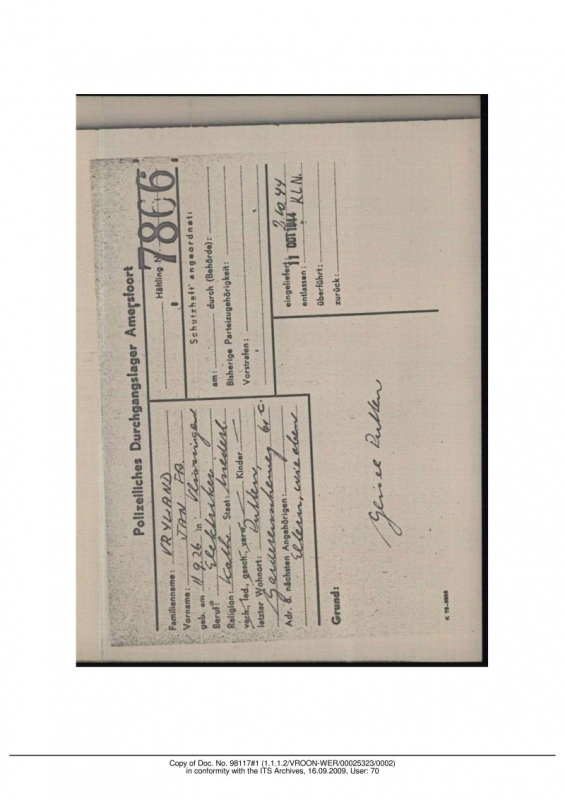 Polizeiliches Durchgangslager Amersfoort
Häftling Nr. 7866
Familienname: VRYLAND
Vorname: JAN
geb. am 11.9.26 in Vlissingen
Beruf: Elektriker
Religion: Kath. Staat: Niederl
verh., led., gesch., verw. Kinder
letzter Wohnort: Putten,
Adr. d. nächsten Angehörigen:
Eltern, wie oben
Schutzhaft angeordnet:
am: durch (Behörde):
Bisherige Parteizugehörigkeit:
Vorstrafen:
eingeliefert: 2.10.44
entlassen: 11 OKT 1944 K.L.N.
überführt:
zurück:
Grund:
Geisel Putten
Copy of Doc. No. 98117#1 (1.1.1.2/VROON-WER/00025323/0002)
in conformity with the ITS Archives, 16.09.2009, User: 70